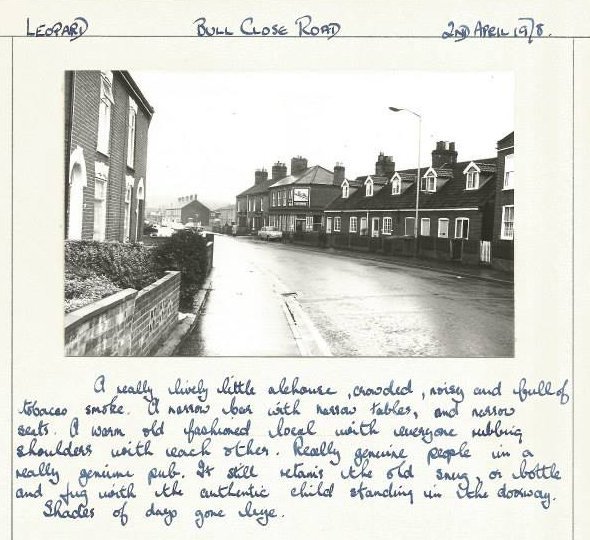 LEOPARD BULL CLOSE ROAD 2ND APRIL 1978.
A really lively little alehouse, crowded, noisy and full of
tobacco smoke. A narrow bar with narrow tables, and narrow
seats. A warm old fashioned local with everyone rubbing
shoulders with each other. Really genuine people in a
really genuine pub. It still retains the old snug, or bottle
and jug with the authentic child standing in the doorway.
Shades of days gone bye.